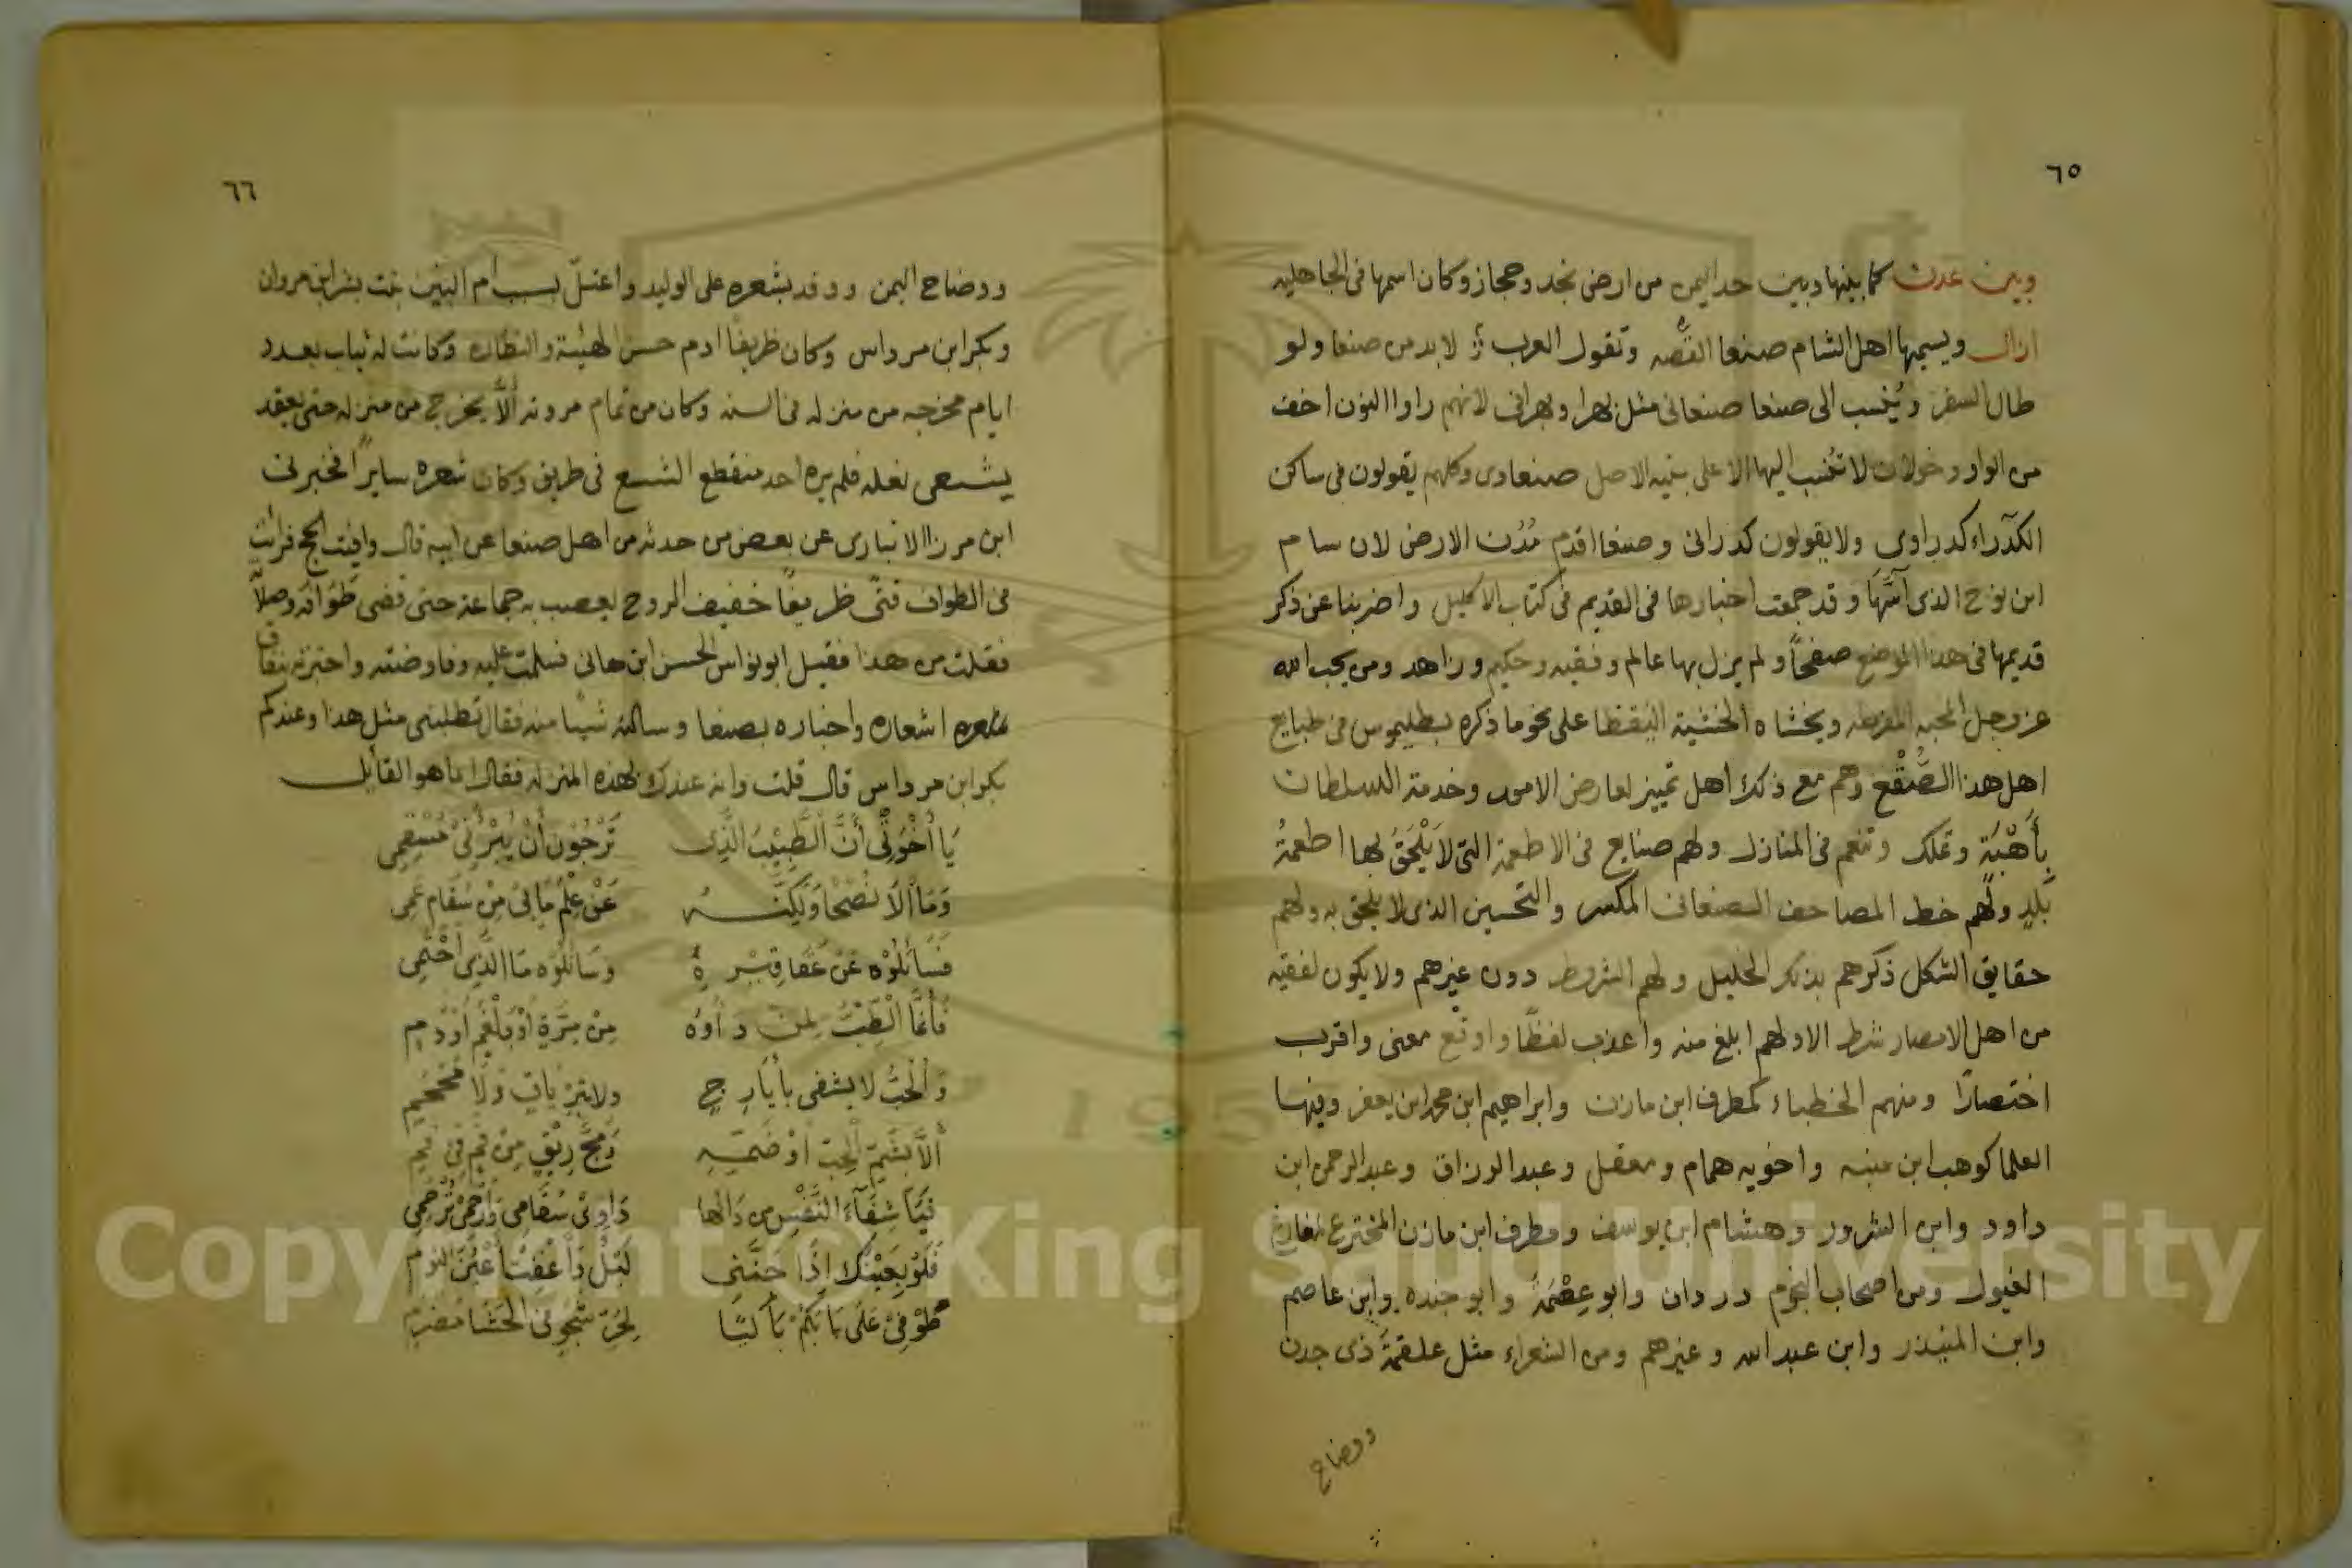 ٦٥
وبين عدن كما بينها وبين حد اليمن من ارض نجد وحجاز وكان اسمها فى الجاهليه
ازال ويسميها اهل الشام صنعا القصبه وتقول العرب لابد من صنعا ولو
طال السفر ويُنسب الى صنعا صنعانى مثل بهرا وبهرانى لانهم راوا النون اخف
من الواو وخولان لا تنسب اليها الا على بنيه الاصل صنعاوى وكلهم يقولون فى ساكن
الكدراء كدراوى ولا يقولون كدرانى وصنعا اقدم مُدُن الارض لان سام
ابن نوح الذى اسَّهَا وقد جمعت اخبارها فى القديم فى كتاب الاكليل واضربنا عن ذكر
قديمها فى هذا الموضع صفحًا ولم يزل بها عالم وفقيه وحكيم وزاهد ومن يحب الله
عز وجل المحبه المفرطه ويخشاه الخشية اليقظا على نحو ما ذكره بطليموس فى طبايع
اهل هذا الصُّقْع وهم مع ذلك اهل تمييز لعارض الامور وخدمة السلطان
بِأَهْبَة وتملك وتنعم فى المنازل ولهم صنايع فى الاطعمة التى لا يَلْحَقُ بها اطعمةُ
بَلَدٍ ولهم خط المصاحف الصنعانى المكسر والتحسين الذى لا يلحق به ولهم
حقايق الشكل ذكرهم بذلك الخليل ولهم الشروط دون غيرهم ولا يكون لفقيه
من اهل الامصار شرط الا ولهم ابلغ منه واعذب لفظًا واوقع معنى واقرب
اختصارًا ومنهم الخطباء كمطرف ابن مازن وابراهيم ابن محمد ابن يعفر وفيها
العلما كوهب ابن منبه واخويه همام ومعقل وعبد الرزاق وعبد الرحمن ابن
داود وابن الشرود وهشام ابن يوسف ومطرف ابن مازن المخترع لمغارة
الغيول ومن اصحاب النجوم دردان وابو عِصْمَةُ وابو جنده وابن عاصم
وابن المنذر وابن عبد الله وغيرهم ومن الشعراء مثل علقمة ذى جدن
ووضاح
٦٦
ووضاح اليمن ووفد بشعره على الوليد واعتلّ بسبب ام البنين بنت بشر ابن مروان
وبكر ابن مرداس وكان ظريفًا ادم حسن الهيئة والنظاره وكانت له ثياب بعدد
ايام مخرجه من منزله فى السنه وكان من تمام مروته ألَّا يخرج من منزله حتى يعقد
يشسعى نعله فلم يره احد منقطع الشسع فى طريق وكان شعره سايرًا فخبرنى
ابن مرزا الانبارى عن بعض من حدثه من اهل صنعا عن ابيه قال وافيت الحج فرائت
فى الطواف فتًى ظريفًا خفيف الروح يعصب به جماعة حتى قضى طَوَافَه وصلَّا
فقلت من هذا فقيل ابو نواس الحسن ابن هانى فسلمت عليه وفاوضته واخبرته بنفاق
شعره اشعاره واخباره بصنعا وسالته شيا منه فقال تطلبنى مثل هذا وعندكم
بكر ابن مرداس قال قلت وانه عندك بهذه المنزله فقال اما هو القائل
يَا أُخْوَتِى أَنَّ الطَّبِيْبَ الَّذِى تَرْجُوْنَ أَنْ يُبْرِئَنِى مُسْقِمِى
وَمَا أَلَا نُصْحًا وَلَكِنَّهُ عَنْ عِلْمِ مَا بِى مِنْ سَقَام عَمِى
فَسَائِلُوْه عَنْ عَقَاقِيْرِهِ وَسَائِلُوْه مَا الَّذِى أَحْتَمِى
فَأَنَّمَا الْطِّبُّ لِمَنْ دَاوُهُ مِنْ مِرَّةٍ أَوْ بَلْغَمٍ أَوْ دَمِ
وَالْحُبُّ لا يشفى بأَيَارِجٍ ولا بِتِرْيَاقٍ وَلَا مَحْجَمِ
أَلَّا بِشَمِّ الْحِبِّ أَوْ ضَمِّهِ وَمَجِّ رِيْقٍ مِنْ فَمٍ فِى فَمِ
فَيَا شِفَآءَ النَّفْسِ مِن دَائها دَاوِىْ سَقَامِى وَارْحَمِىْ تُرْحَمِى
فَلَوْ بِعَيْنَكِ إِذَا جَنَّنِى لَيْلٌ وَأَغْفَتْ أَعْيُنُ النُوَّم
طَوْفِىْ عَلَى بَابَكُمْ بَاكِيًا لِحُزْنِ شَجْوٍ فى الحَشَا مُضْرَمِ
Copyright © King Saud University
195